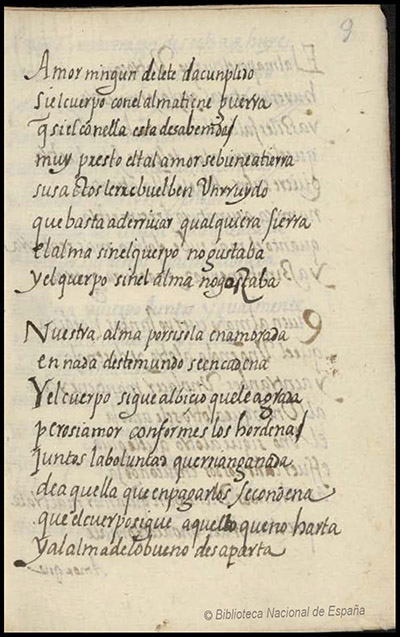 9
Amor ningun delete da cunplido
si el cuerpo con el alma tiene guerra
q si el con ella esta desabenido
muy presto el tal amor se biene a tierra
sus actos le rebuelben Un rruydo
que basta a derriuar qualquiera sierra
el alma sin el querpo no gustaba
y el querpo sin el alma no gozaba
9
Nuestra alma por si sola enamorada
en nada deste mundo se encadena
Y el cuerpo sigue al bicio que le agrada
pero si amor conformes los hordena
Juntos la boluntad quernan ganada
de aquella que en pagarlos se condena
que el cuerpo sigue aquello que no harta
y al alma de lo bueno des aparta
© Biblioteca Nacional de España